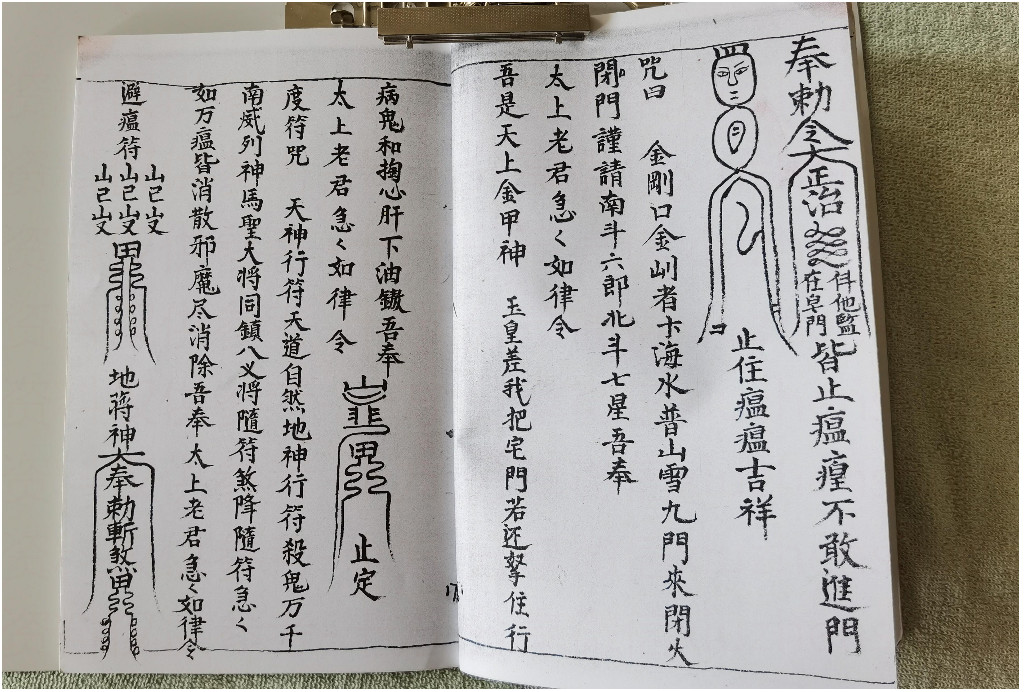 奉勅令大正治在皂門 皆止瘟瘟不敢進門
止住瘟瘟吉祥
咒曰 金剛口金刂者卞海水普山雪九門來閉火
閉門謹請南斗六郎北斗七星吾奉
太上老君急々如律令
吾是天上金甲神 玉皇差我把宅門若还拏住行
病鬼和掏心肝下油鑊吾奉
太上老君急々如律令 止定
度符咒 天神行符天道自然地神行符殺鬼万千
南威列神馬聖大將同鎮八义將隨符煞降隨符急々
如万瘟皆消散邪魔尽消除吾奉太上老君急々如律令
避瘟符 地蒋神大奉勅斬煞鬼